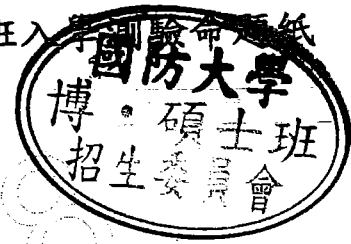 班入學測驗命題紙
國防大學
博•碩士班
招生委員會